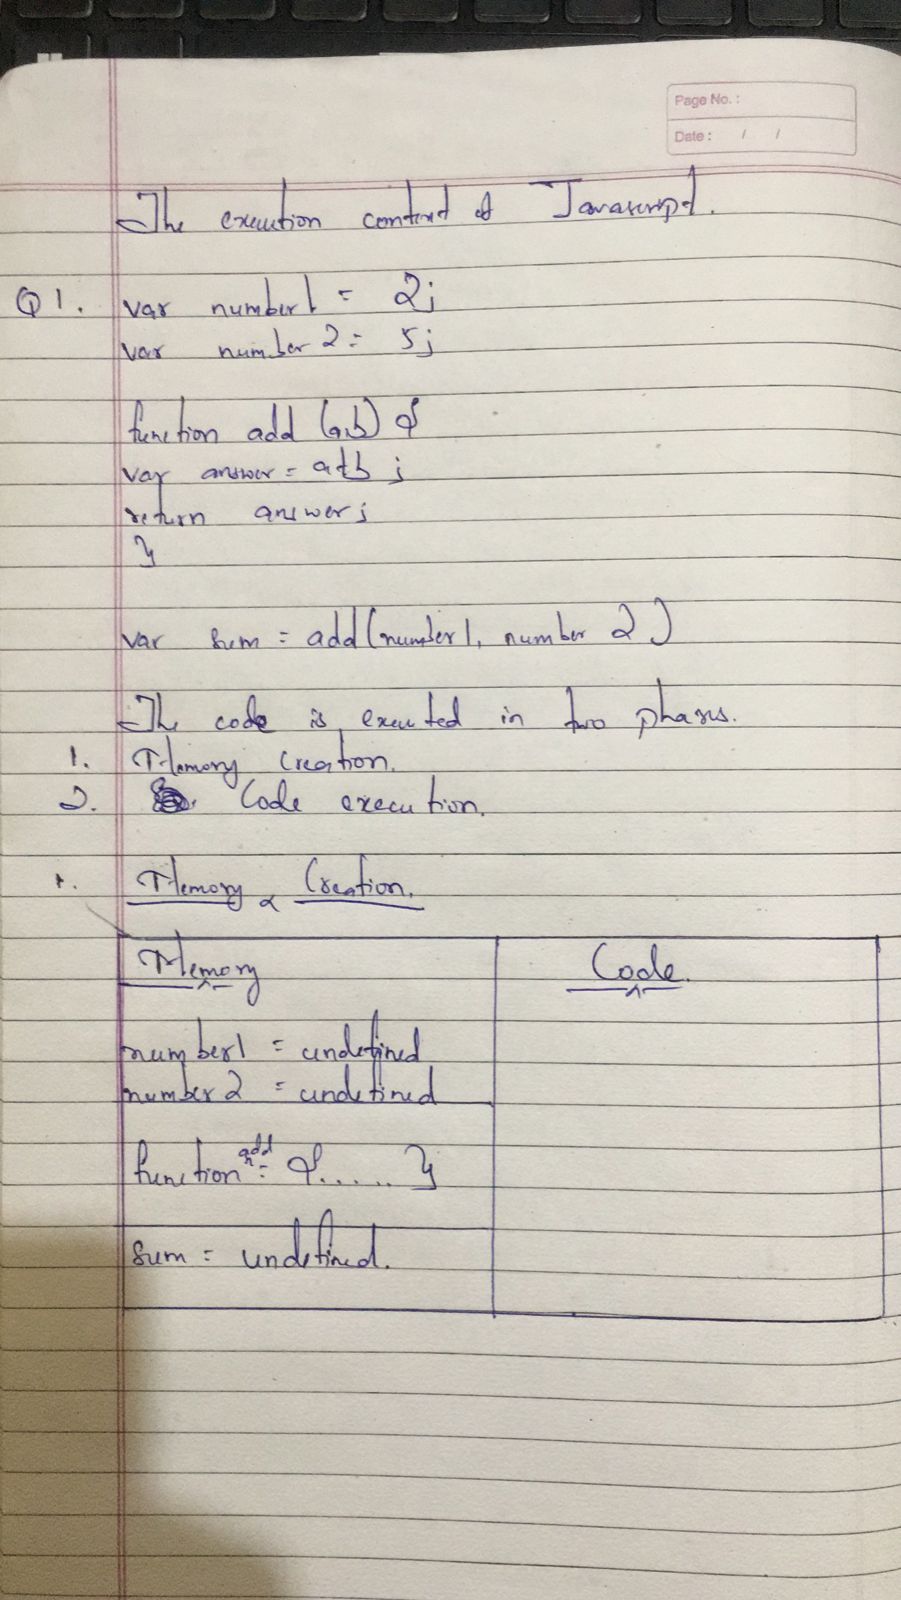 Page No. :
Date : / /
The execution context of Javascript.
Q1. var number1 = 2;
var number2 = 5;
function add (a,b) {
var answer = a+b ;
return answer;
}
var sum = add(number1, number 2)
The code is executed in two phases.
1. Memory Creation.
2. Code execution.
1. Memory Creation.
Memory Code.
number1 = undefined
number2 = undefined
function add = {...... }
sum = undefined.